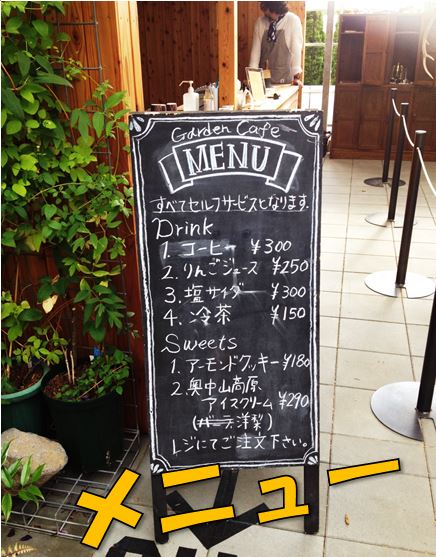 Garden Cafe
MENU
すべてセルフサービスとなります.
Drink
1. コーヒー ¥300
2. りんごジュース ¥250
3. 塩サイダー ¥300
4. 冷茶 ¥150
Sweets
1. アーモンドクッキー ¥180
2. 奥中山高原
アイスクリーム ¥290
(バーテ洋梨)
レジにてご注文下さい。
メニュー